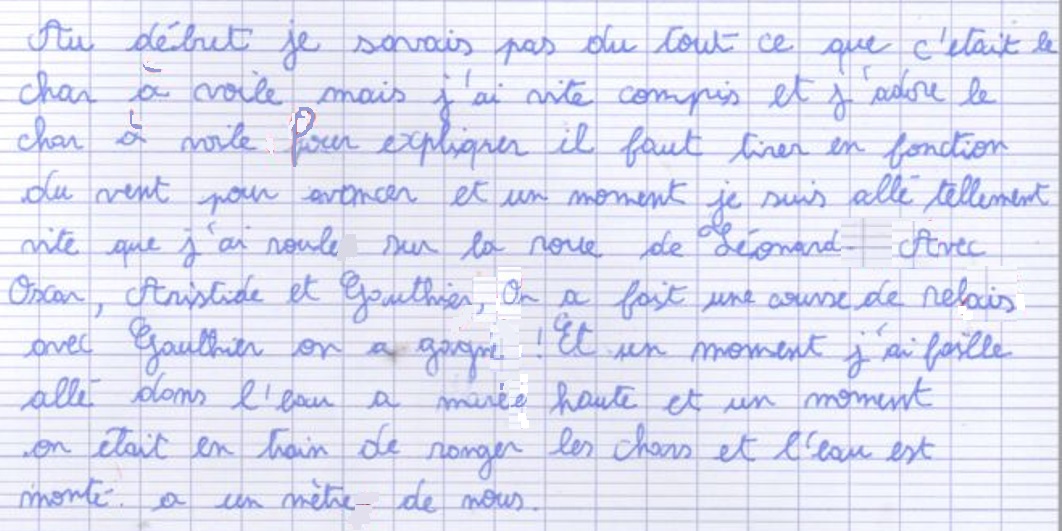 Au début je savais pas du tout ce que c'était le
char à voile mais j'ai vite compris et j'adore le
char à voile Pour expliquer il faut tirer en fonction
du vent pour avancer et un moment je suis allé tellement
vite que j'ai roule sur la roue de Léonard. Avec
Oscar, Aristide et Gauthier, On a fait une course de relais
avec Gauthier on a gagné ! Et un moment j'ai faille
allé dans l'eau a marée haute et un moment
on était en train de ranger les chars et l'eau est
monté. a un mètre de nous.